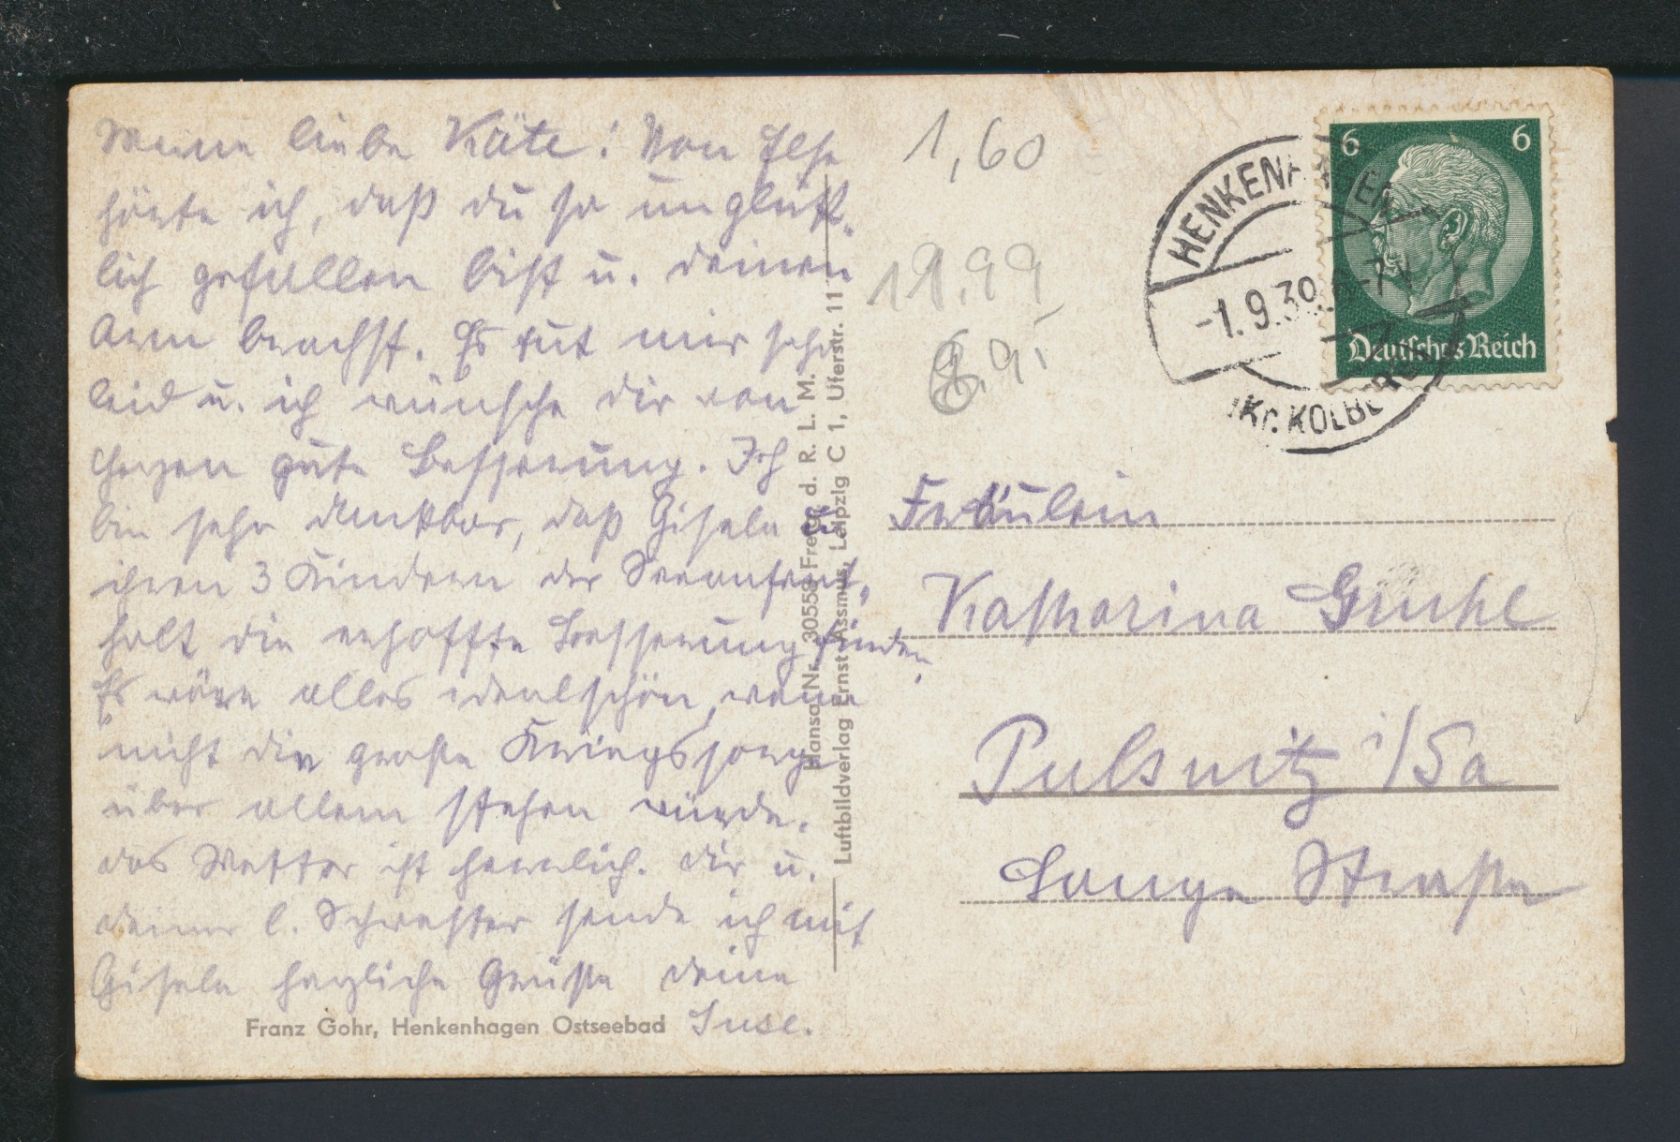 Meine liebe Käte! Von Ilse
hörte ich, daß du so unglück-
lich gefallen bist u. deinen
Arm brachst. Es tut mir sehr
leid u. ich wünsche dir von
Herzen gute Besserung. Ich
bin sehr dankbar, daß Gisela u.
ihren 3 Kindern der
halt die erhoffte Besserung finden.
Es wäre alles idealschön, wenn
nicht die große Kriegssorge
über allem stehen würde.
das Wetter ist herrlich. Dir u.
deiner l. Schwester sende ich mit
Gisela herzliche Grüße deine
Suse.
Franz Gohr, Henkenhagen Ostseebad
Hansa Nr. 30558 Freig. d. R. L. M.
Luftbildverlag Ernst Assmus, Leipzig C 1, Uferstr. 11
1,60
6 6
Deutsches Reich
HENKENHAGEN
-1.9.39.6-7
KOLBERG
Fräulein
Katharina Gruhl
Pulsnitz i/Sa
Lange Straße